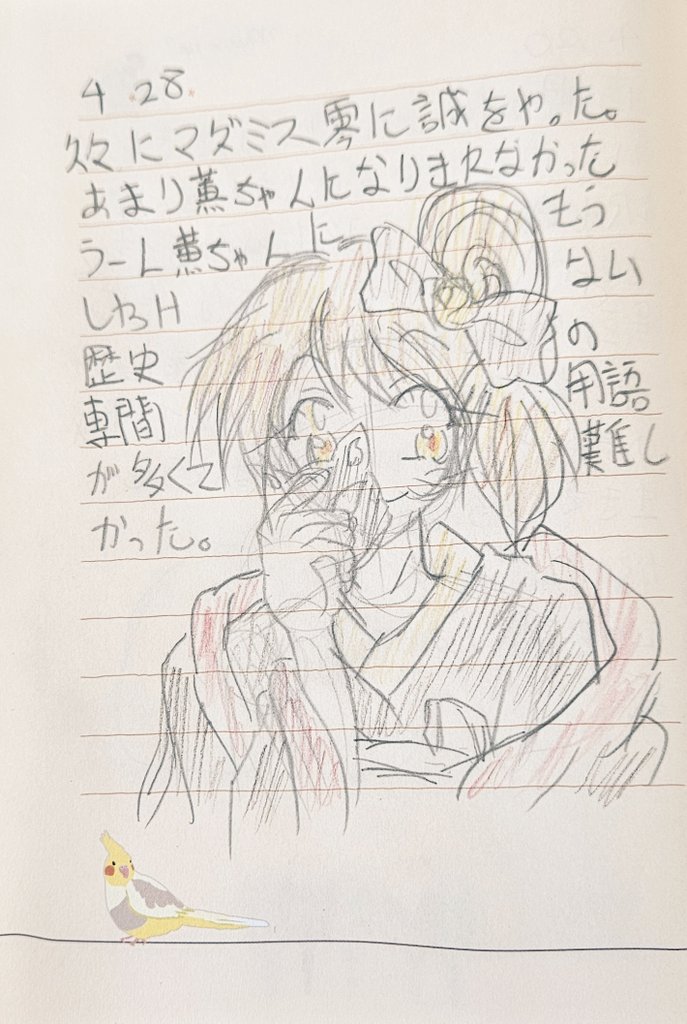 4.28.
久々にマダミス零に誠をやった。
あまり薫ちゃんになりきれなかった
うーん薫ちゃんに もう
ない
歴史 の
専間 用語。
が多くて 難し
かった。